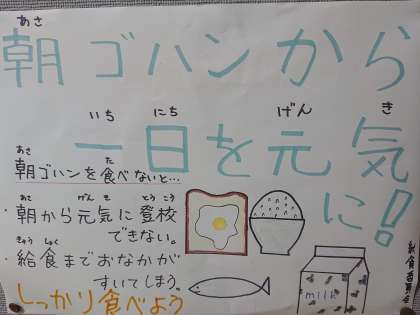 あさ
朝ゴハンから
いち にち げん き
一日を元気
に!
あさ た
朝ゴハンを食べないと…
あさ げん き とう こう
・朝から元気に登校
できない。
きゅう しょく
・給食までおなかが
すいてしまう。
しっかり食べよう
milk
給食委員会